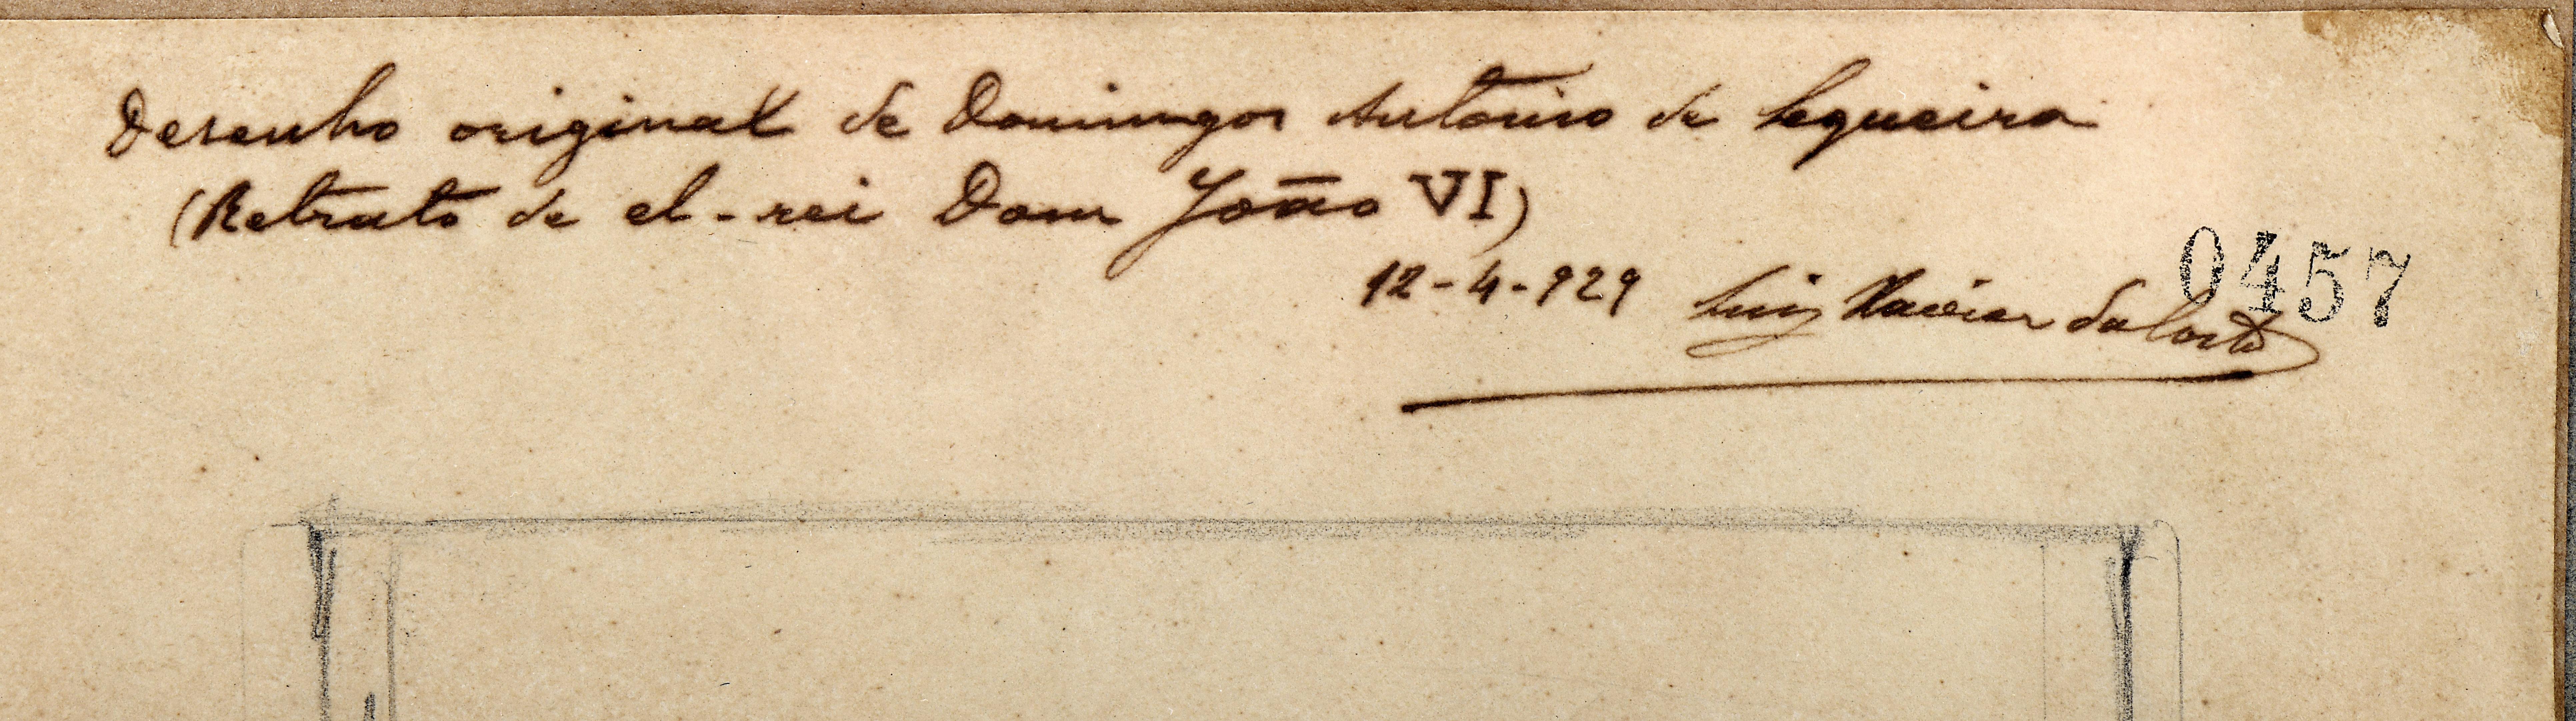 Desenho original de Domingos Antonio de Sequeira
(Retrato de el-rei Dom João VI)
0457
12-4-929 Luiz Xavier da Costa